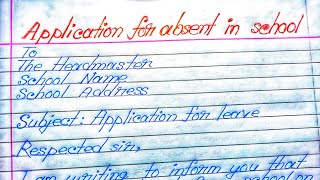 Application for absent in school
To
The Headmaster
School Name
School Address
Subject: Application for leave
Respected sir,
I am writing to inform you that
school on